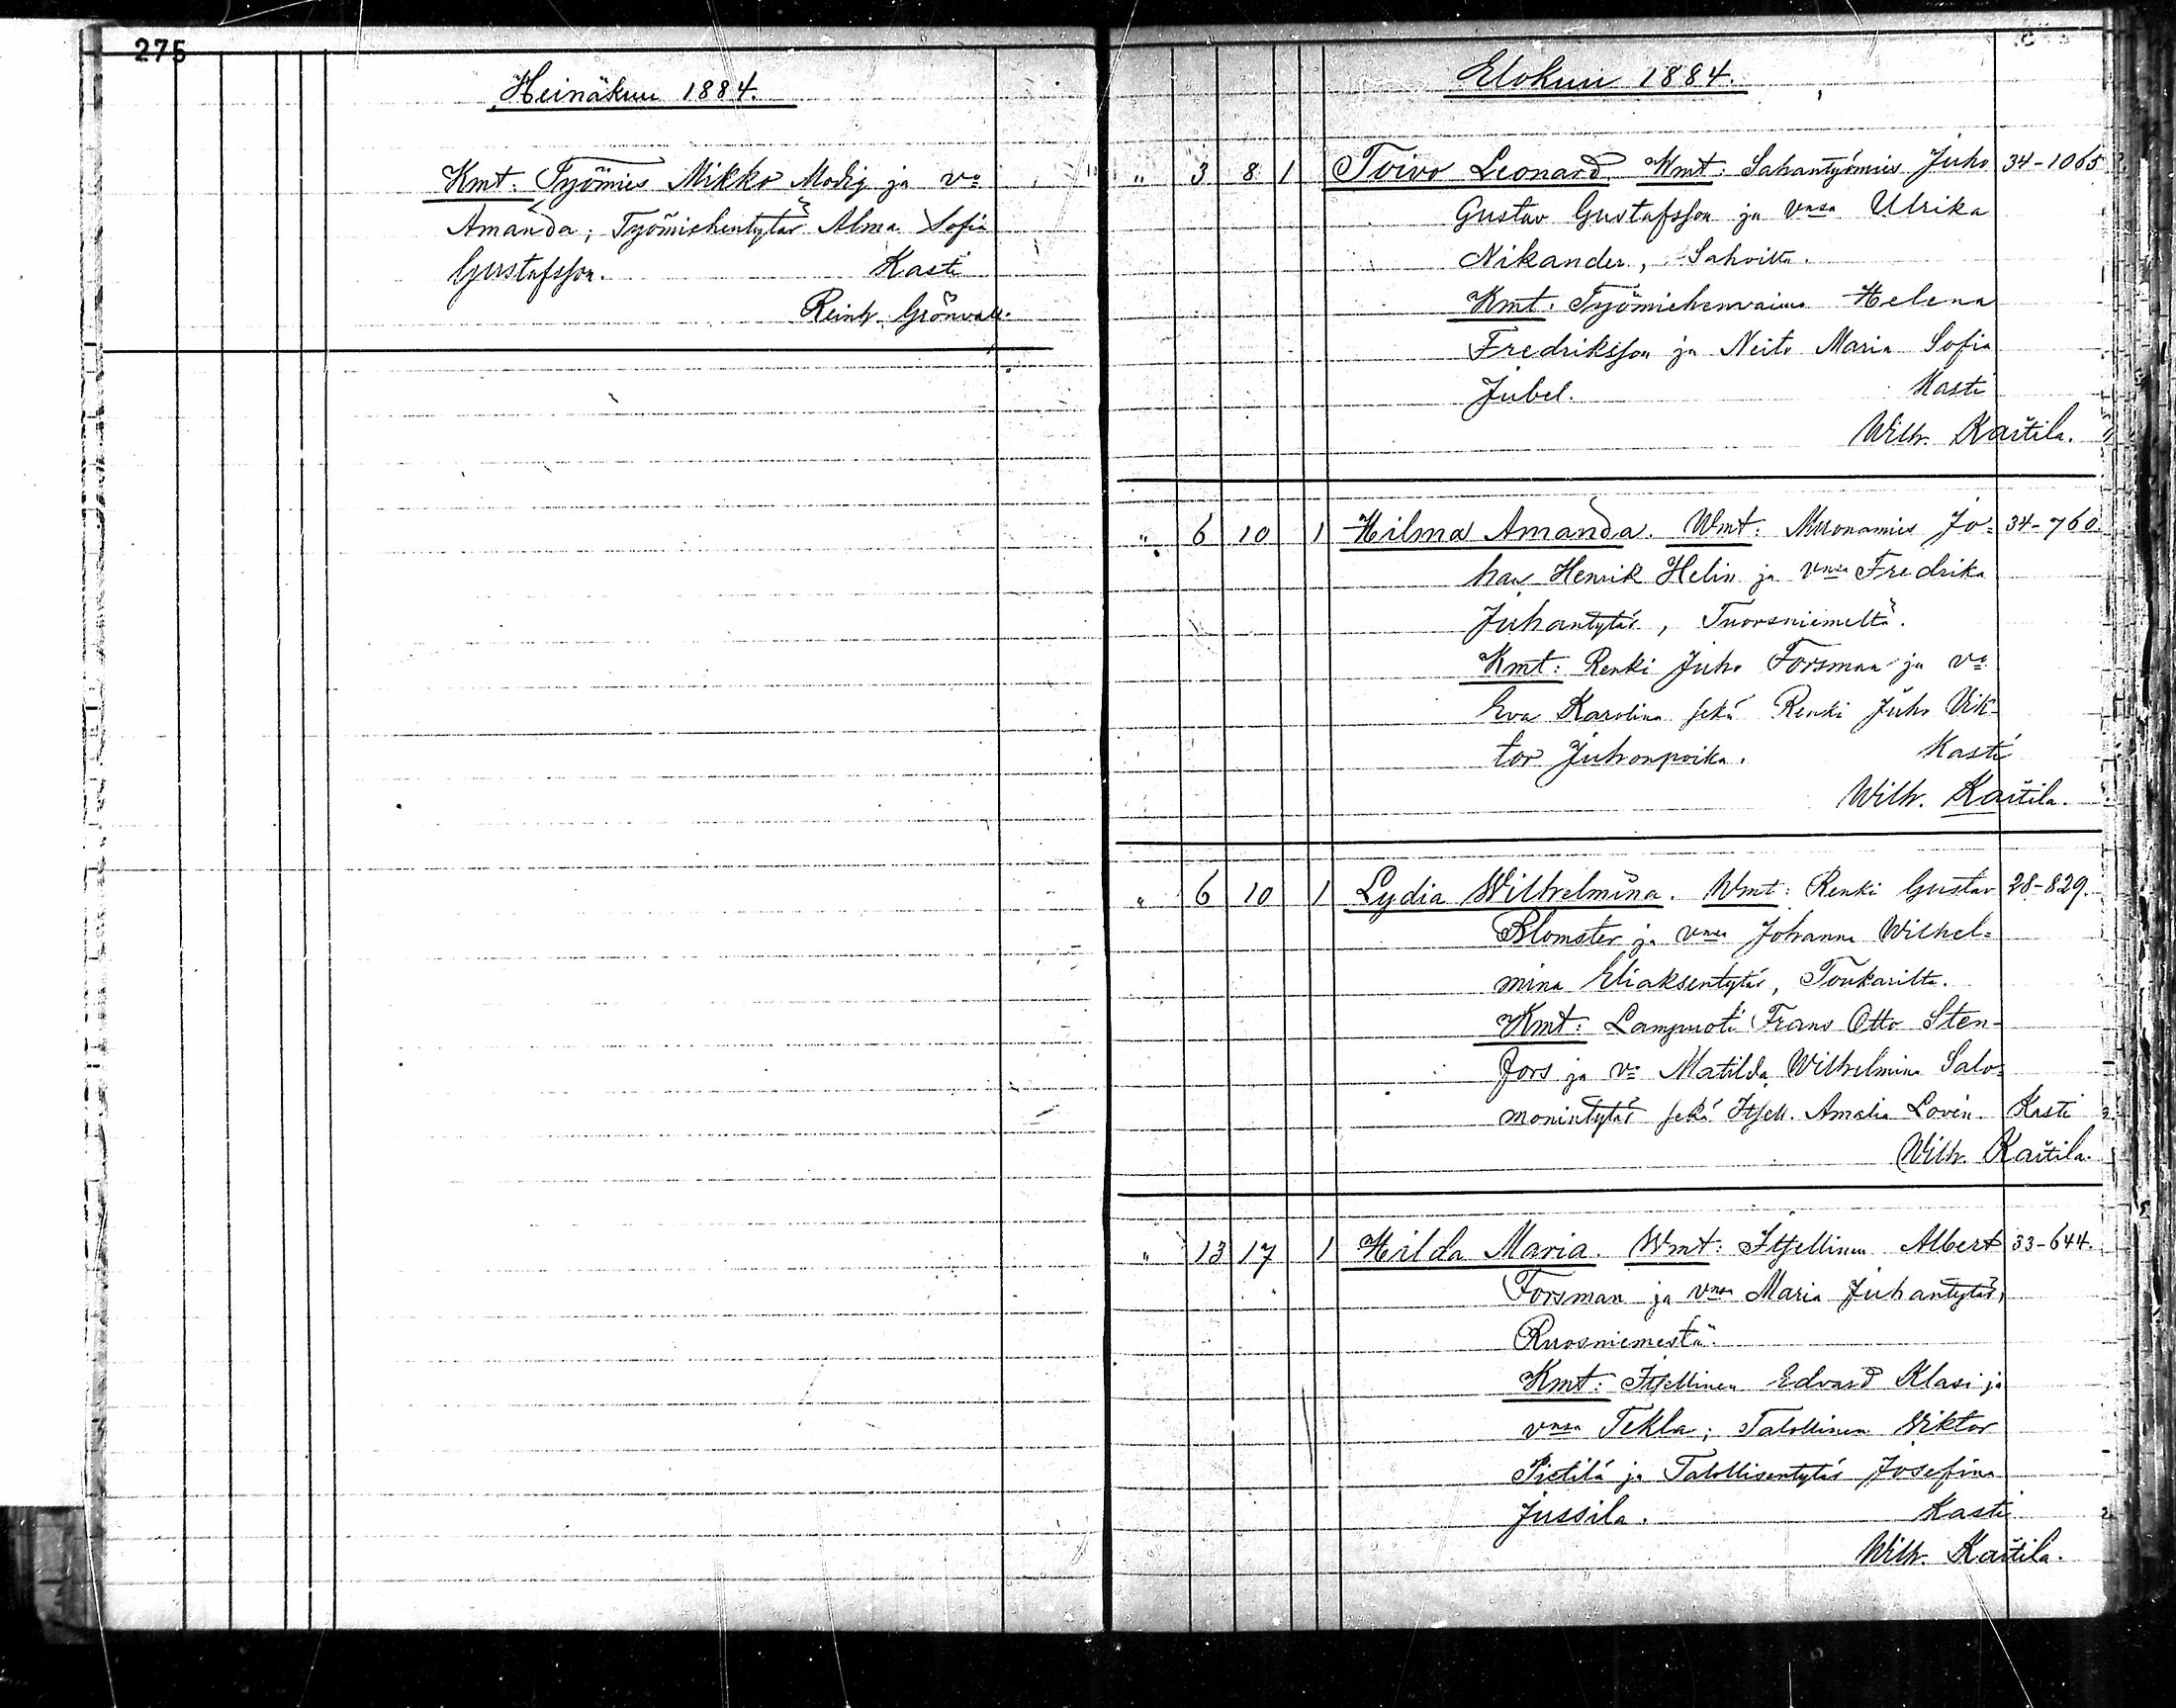 275
Heinäkuu 1884.
Kmt: Työmies Mikko Modig ja vo
Amanda; Työmiehentytär Alma Sofia
Gustafsson. Kasti
Reinh. Grönvall.
Elokuu 1884.
" 3 8 1 Toivo Leonard. Wmt: Sahantyömies Juho 34-1065
Gustav Gustafsson ja vnsa Ulrika
Nikander, Sahoilta.
Kmt: Työmiehenvaimo Helena
Fredriksson ja Neito Maria Sofia
Jubel. Kasti
Wilh. Kaitila.
" 6 10 1 Hilma Amanda. Wmt: Muonamies Jo= 34-760.
han Henrik Helin ja vnsa Fredrika
Juhantytär, Tuorsniemeltä.
Kmt: Renki Juho Forsman ja vo
Eva Karolina sekä Renki Juho Vik-
tor Juhonpoika. Kasti
Wilh. Kaitila.
" 6 10 1 Lydia Wilhelmina. Wmt: Renki Gustav 28-829.
Blomster ja vnsa Johanna Wilhel=
mina Eliaksentytär, Toukarilta.
Kmt: Lampuoti Frans Otto Sten-
fors ja vo Matilda Wilhelmina Salo=
monintytär sekä Itsell. Amalia Lovén. Kasti
Wilh. Kaitila.
" 13 17 1 Hilda Maria. Wmt: Itsellinen Albert 33-644.
Forsman ja vnsa Maria Juhantytär,
Ruosniemestä.
Kmt: Itsellinen Edvard Klasi ja
vnsa Tekla; Talollinen Viktor
Pietilä ja Talollisentytär Josefina
Jussila. Kasti
Wilh. Kaitila.